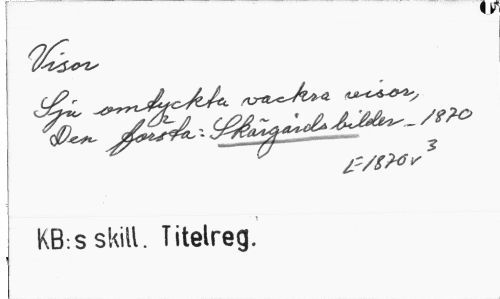 Visor
Sju omtyckta vackra visor,
Den första: Skärgårdsbilder - 1870
E1870v3
KB:s skill. Titelreg.